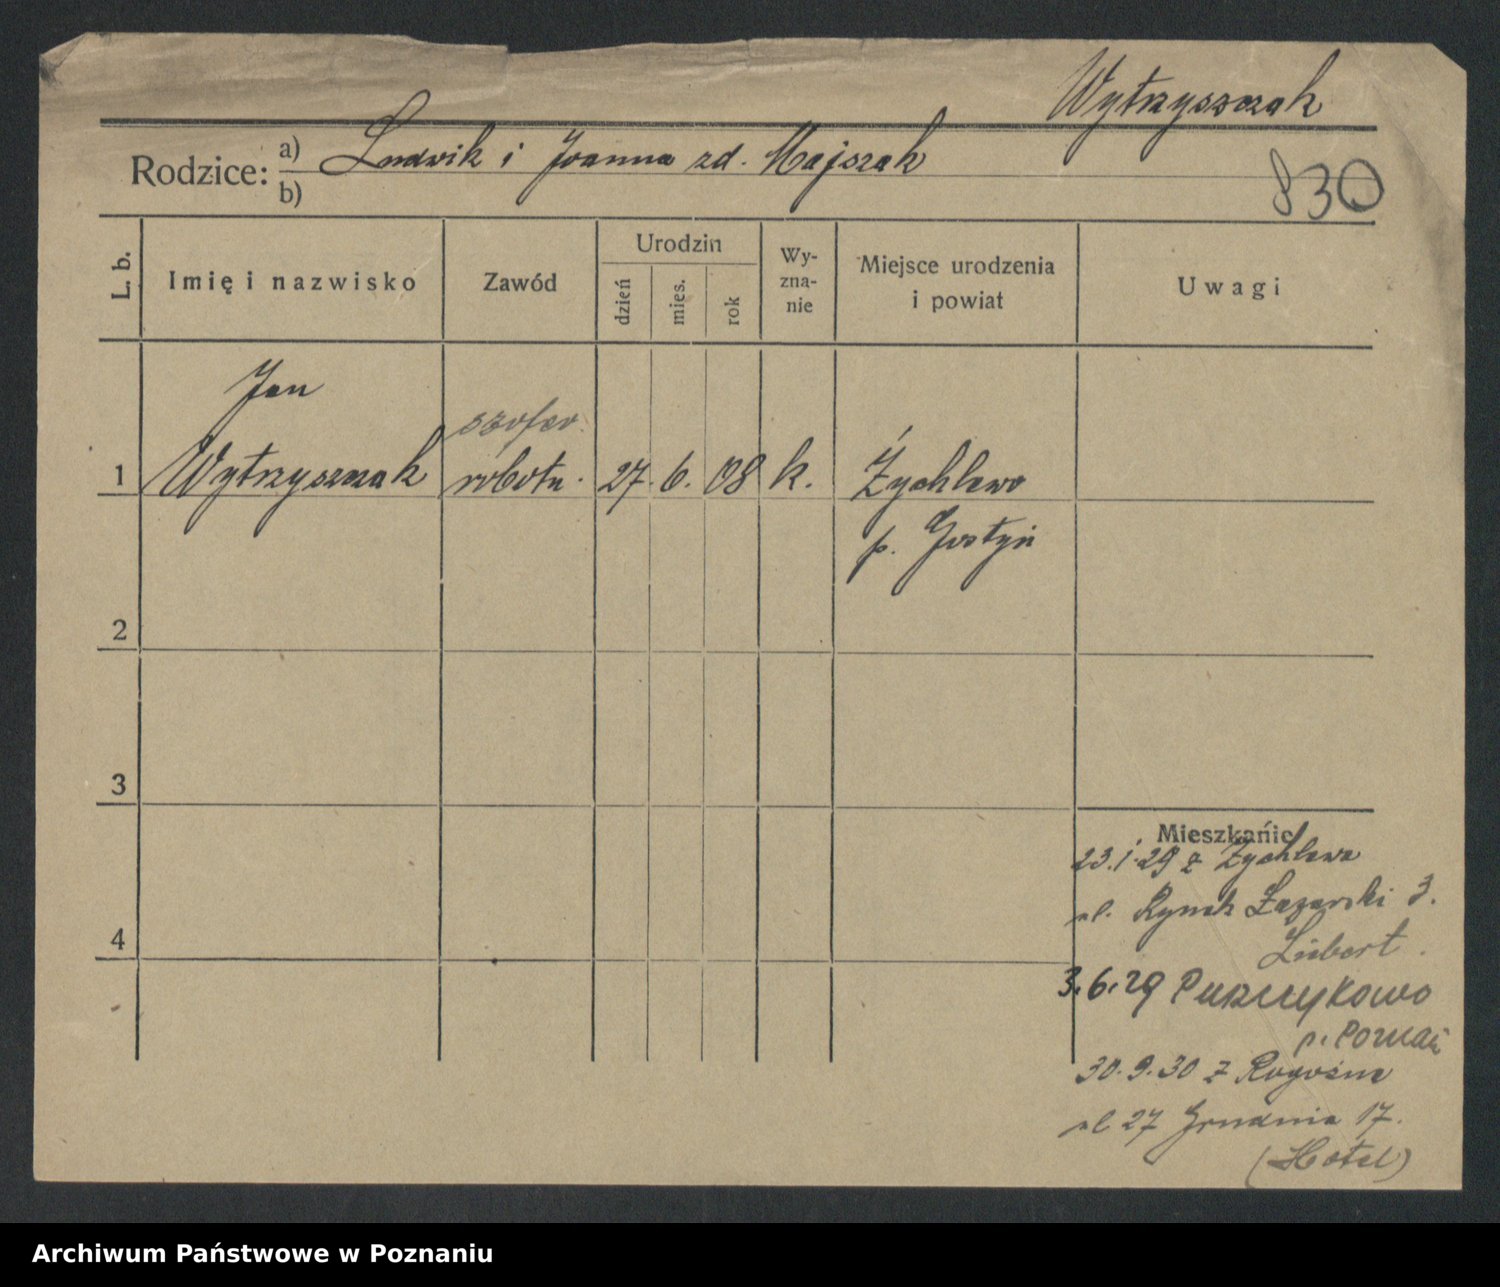 Wytrzyszczak
Rodzice: a) Ludwik i Joanna zd. Majszak
b)
830
L. b.
Imię i nazwisko
Zawód
Urodzin
dzień
mies.
rok
Wy-
zna-
nie
Miejsce urodzenia
i powiat
Uwagi
Jan
szofer.
1 Wytrzyszczak robotn. 27. 6. 08 k. Żychlewo
p. Gostyń
2
3
4
Mieszkanie
23.1.29 z Żychlewa
ul. Rynek Łazarski 3.
Liebert.
3.6.29 Puszczykowo
p. Poznań
30.9.30 z Rogoźna
ul 27 Grudnia 17.
(Hotel)
Archiwum Państwowe w Poznaniu